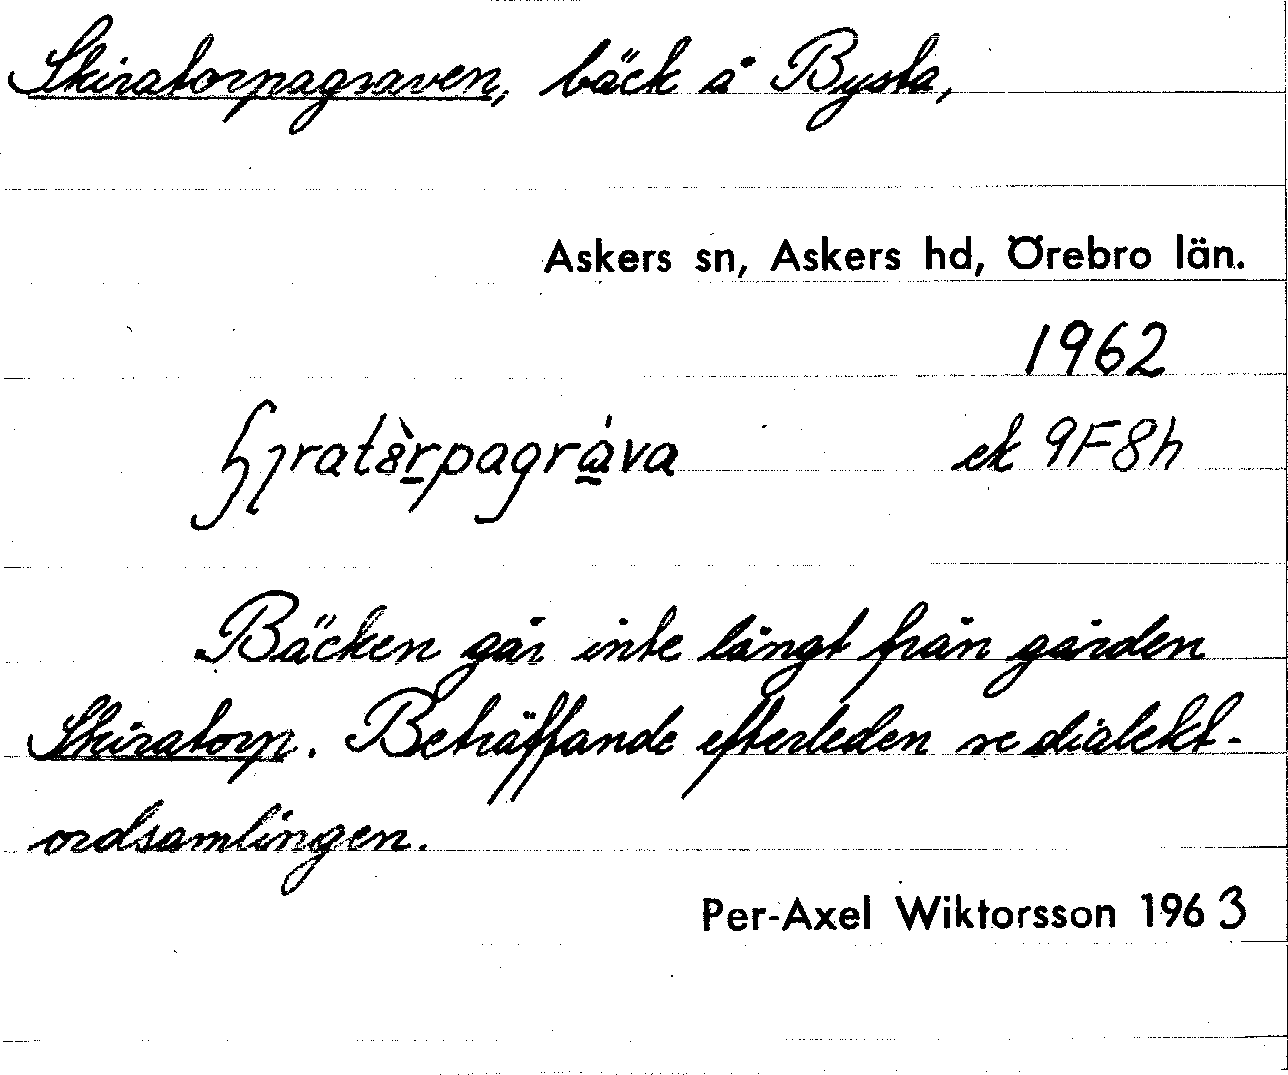 Skiratorpagraven, bäck å Bysta,
Askers sn, Askers hd, Örebro län.
1962
ek 9F8h
Bäcken går inte långt från gården
Skiratorp. Beträffande efterleden se dialekt-
ordsamlingen.
Per-Axel Wiktorsson 1963